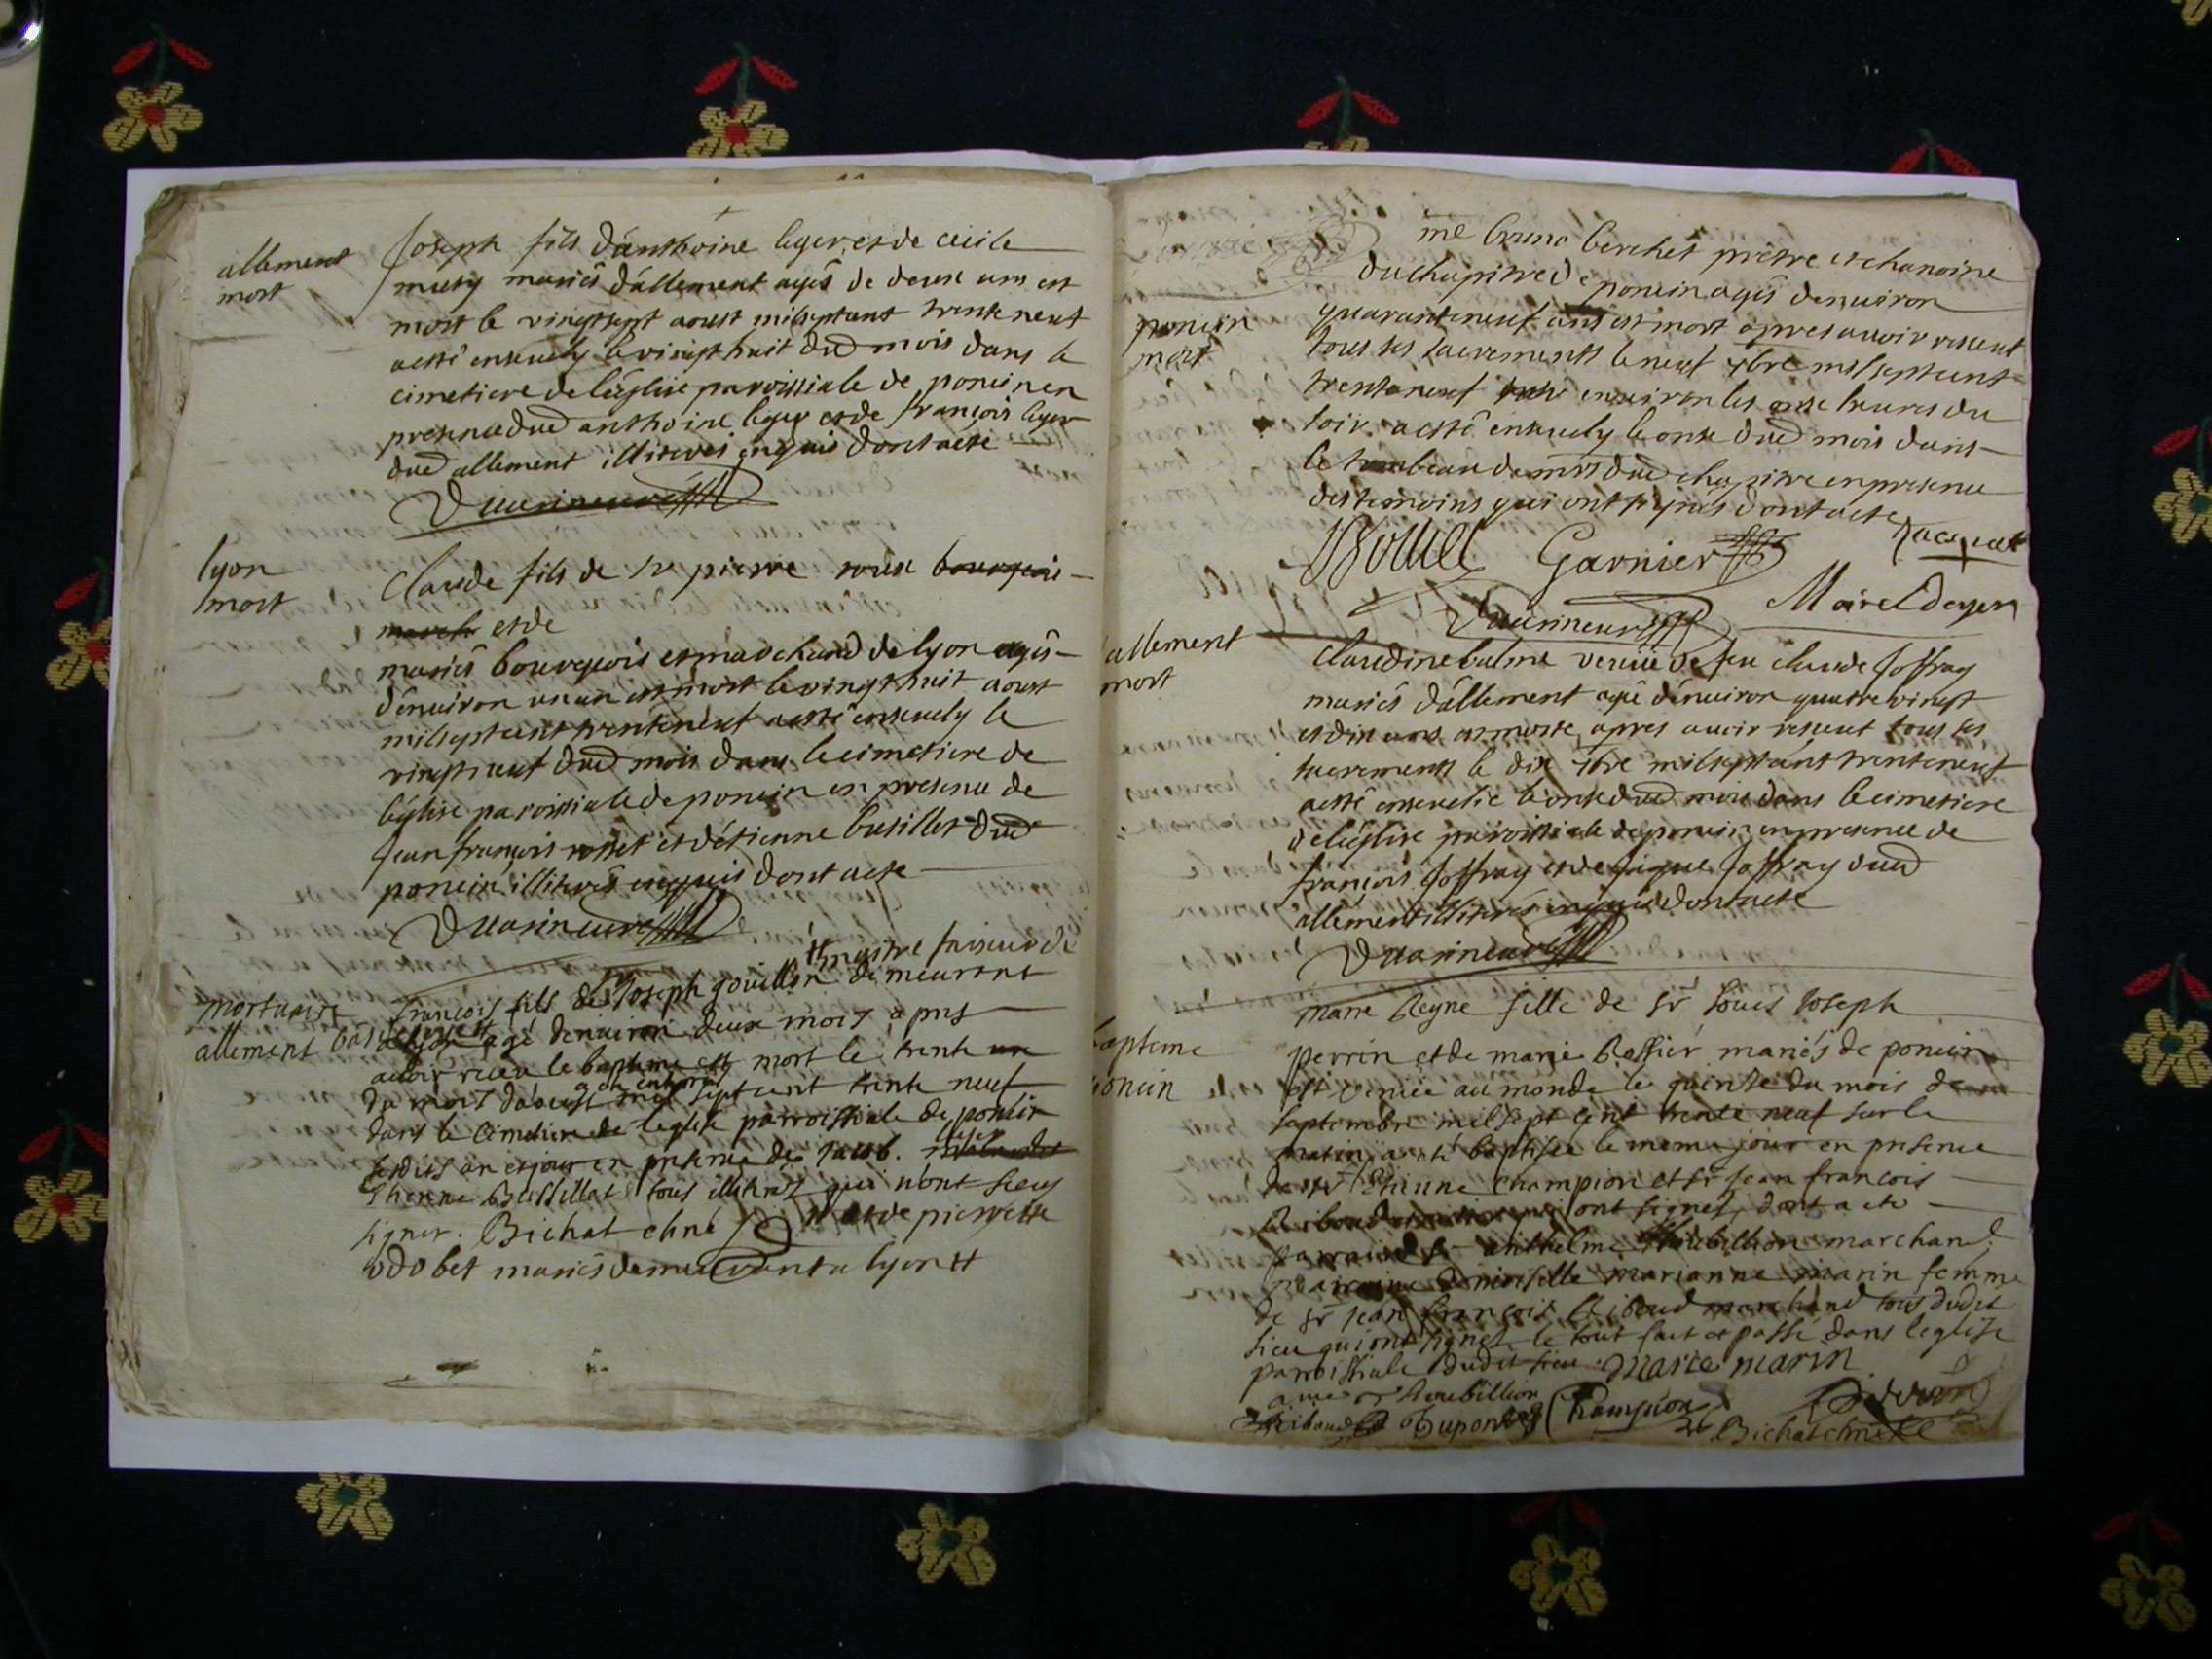 allement
mort
Joseph fils d'anthoine leger, et de cecile
mariés d'allement agés de deux ans est
mort le vingtsept aoust milseptcent trente neuf
a esté ensevely le vingt huit dud mois dans le
cimetiere de l'église paroissiale de poncin en
presence dud anthoine leger et de françois leger
dud allement illiterés enquis dont acte
lyon
mort
Claude fils de sr pierre roux bourgeois
march et de
mariés bourgeois et marchand de lyon agés
d'environ un an est mort le vingt huit aoust
milseptcent trenteneuf a esté ensevely le
vingt neuf dud mois dans le cimetiere de
l'église paroissiale de poncin en presence de
Jean françois et d'étienne busillet dud
poncin illiterés enquis dont acte
mortuaire
allement
# maitre faiseur de
bas
françois fils de Sr Joseph gouillon demeurant
a lyon agé denviron deux mois apres
avoir receu le bapteme est mort le trente un
du mois daoust mil sept cent trente neuf
a été enterré
dans le cimetiere de leglise parroissiale de poncin
lesdits an et jour en presence de Jacob
leger
Etienne Bussillat tous illiterez qui nont sceu
signer. Bichat chne # et de pierrette
odobet mariés demeurant a lyon #
poncin
mort
mre bruno berchet prêtre et chanoine
du chapitre de poncin agés denviron
quaranteneuf ans est mort apres avoir receut
tous ses sacrements le neuf 7bre milseptcent
trenteneuf environ les onze heures du
soir a esté ensevely le onze dud mois dans
le tombeau de mrs dud chapitre en presence
des temoins qui ont signés dont acte
Garnier
Jacquet
Morel doyen
allement
mort
Claudine balme veuve de feu claude Joffray
mariés d'allement agée d'environ quatre vingt
et dix ans est morte apres avoir receut tous ses
sacrements le dix 7bre milseptcent trenteneuf
a esté ensevelie le onze dud mois dans le cimetiere
de l'église paroissiale de poncin en presence de
françois Joffray et de Joffray dud
allement illiterés enquis dont acte
bapteme
poncin
marie Reyne fille de sr Louis Joseph
perrin et de marie Bossier mariés de poncin
est venue au monde le quinze du mois de
septembre mil sept cent trente neuf sur le
matin a eté baptisée le meme jour en presence
de sr Etienne Champion et sr jean francois
Riboud qui ont signes, dont acte
parrain sr anthelme Thoubillion marchand
marraine Demoiselle marianne marin femme
de sr jean francois Riboud marchand tous dudit
lieu qui ont signes le tout fait et passé dans leglise
parroissiale dudit lieu. marie marin
Thoubillion
Riboud Dupont Champion
Bichat chne